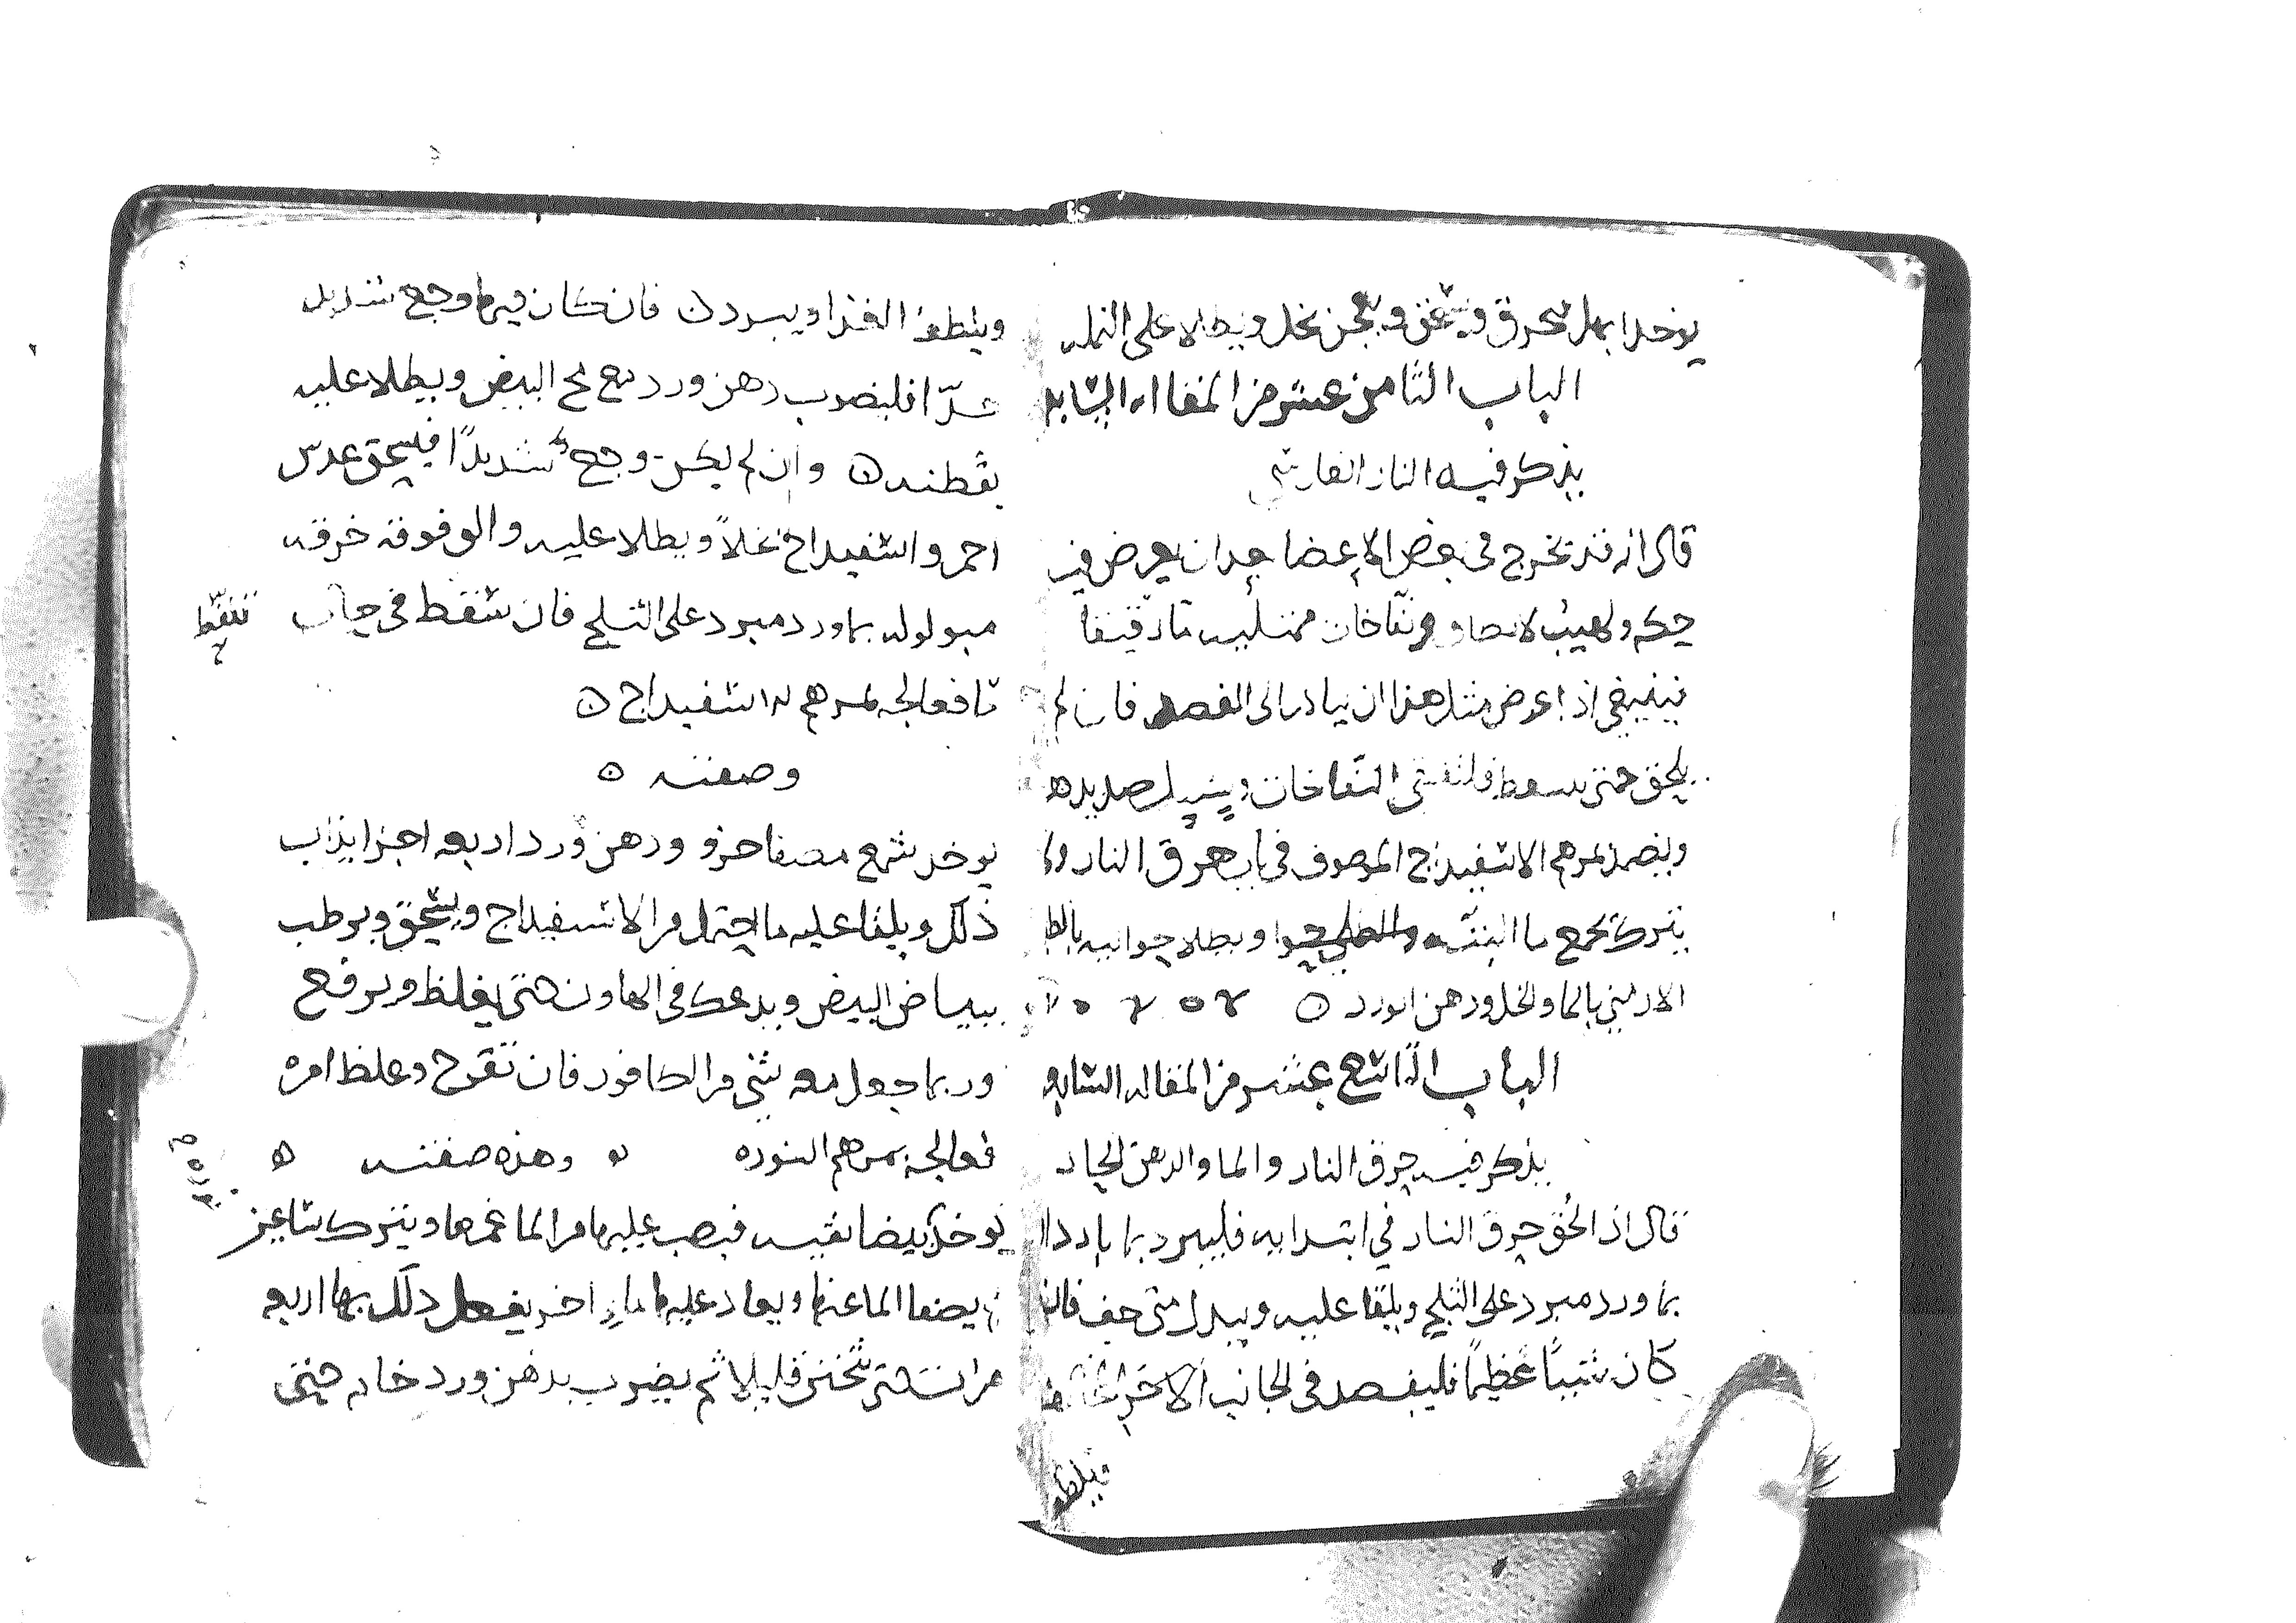 يوخد ابهل فيحرق ويسحق ويعجن بخل ويطلا على النمله
الباب الثامن عشر من المقاله السابعه
يذكر فيه النار الفارسي
قال انه قد تخرج في بعض الاعضا بعد ان يعرض فيه
حكه ولهيب نفاخات ممتليه ما رقيقا
فينبغي اذا عرض مثل هذا ان يبادر الى الفصد فان لم
يلحق حتى فلتفقى النفاخات ويسيل صديدها
ويضمد بمرهم الاسفيداج الموصوف في باب حرق النار ولا
يترك تجمع ما البته ويطلا حواليه بالطين
الارمني بالما والخل ودهن الورد
الباب التاسع عشر من المقاله السابعه
يذكر فيه حرق النار والما والدهن الحار
قال اذا لحق حرق النار في ابتدايه فليبرد بما بارد او
بما ورد مبرد على الثلج ويلقا عليه ويبدل متى جف فان
كان شيئا عظيما فليفصد في الجانب الاخر
ويلطف
ويلطف الغذا ويبرد فان كان فيها وجع شديد
جدا فليضرب دهن ورد مع مح البيض ويطلا عليه
بقطنه وان لم يكن وجع شديدا فيسحق عدس
احمر واسفيداج بخلا ويطلا عليه والو فوقه خرقه
مبلوله بماورد مبرد على الثلج فان تنفط في حال
تنفط
ما فعالجه بمرهم الاسفيداج
وصفته
يوخد شمع مصفا جزو ودهن ورد اربعه اجزا يذاب
ذلك ويلقا عليه ما احتمل من الاسفيداج ويسحق ويرطب
ببياض البيض ويدعك في الهاون حتى يغلظ ويرفع
وربما جعل معه شي من الكافور فان تقرح وغلظ امره
فعالجه بمرهم النوره وهذه صفته
يوخد بيضا نقيه فيصب عليها من الما غمرها ويترك ساعتين
ثم يصفا الما عنها ويعاد عليها ما اخر يفعل ذلك بها اربعه
مرات حتى تثخن قليلا ثم يضرب بدهن ورد خام حتى